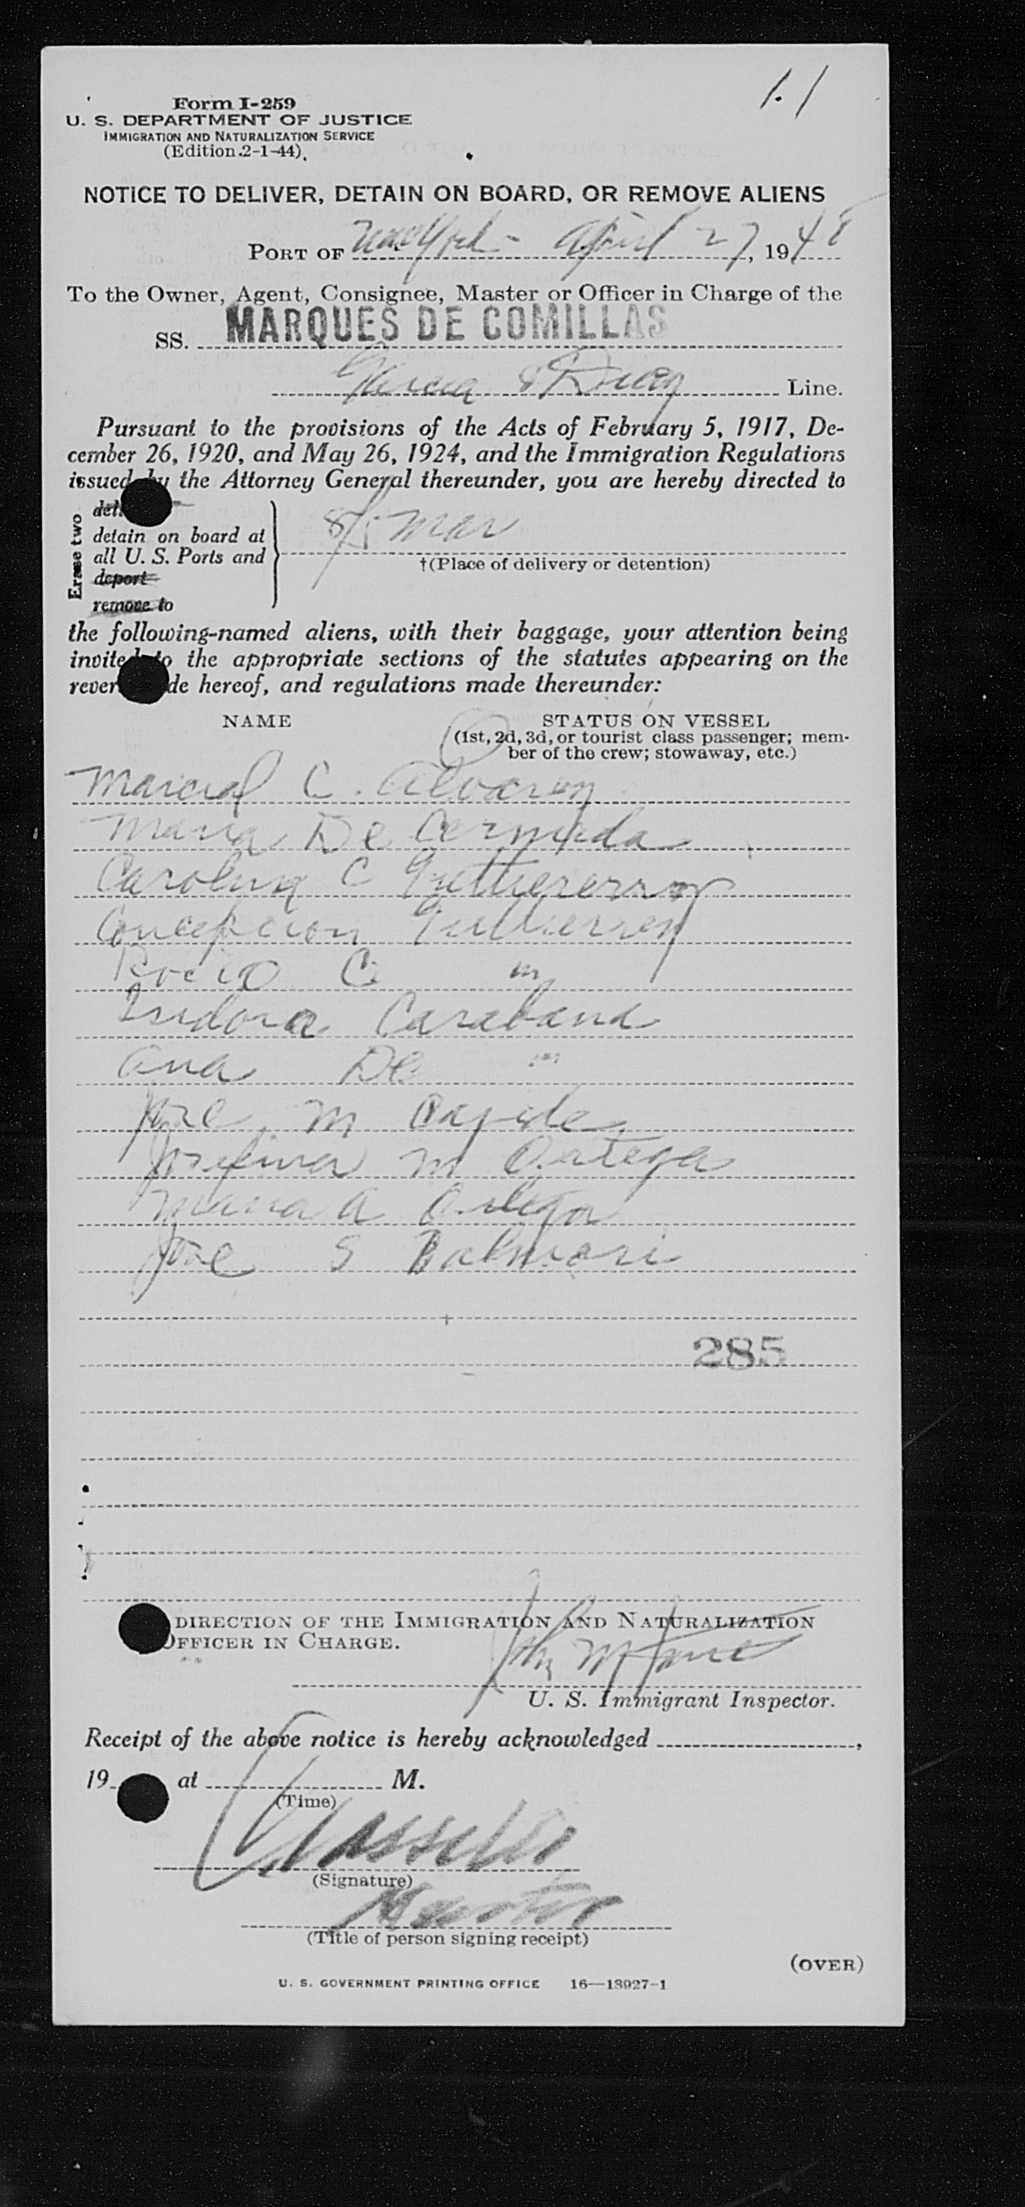 1.1
Form I-259
U. S. DEPARTMENT OF JUSTICE
IMMIGRATION AND NATURALIZATION SERVICE
(Edition 2-1-44)
NOTICE TO DELIVER, DETAIN ON BOARD, OR REMOVE ALIENS
PORT OF New York - April 27, 1948
To the Owner, Agent, Consignee, Master or Officer in Charge of the
SS. MARQUES DE COMILLAS
Garcia & Diaz Line.
Pursuant to the provisions of the Acts of February 5, 1917, De-
cember 26, 1920, and May 26, 1924, and the Immigration Regulations
issued by the Attorney General thereunder, you are hereby directed to
Erase two
detain on board at
all U. S. Ports and
deport
remove to
†(Place of delivery or detention)
the following-named aliens, with their baggage, your attention being
invited to the appropriate sections of the statutes appearing on the
de hereof, and regulations made thereunder:
NAME STATUS ON VESSEL
(1st, 2d, 3d, or tourist class passenger; mem-
ber of the crew; stowaway, etc.)
Marcial C. Alvarez
Maria De Cermida
Carolina C
Concepcion Guttierrez
Rocio C "
Isidora Caraband
Ana De "
Jose M
Josefina M Ortega
Maria A Ortega
Jose S Balmori
285
DIRECTION OF THE IMMIGRATION AND NATURALIZATION
OFFICER IN CHARGE.
John M
U. S. Immigrant Inspector.
Receipt of the above notice is hereby acknowledged
19 at M.
(Time)
(Signature)
Master
(Title of person signing receipt)
(OVER)
U. S. GOVERNMENT PRINTING OFFICE 16—13927-1